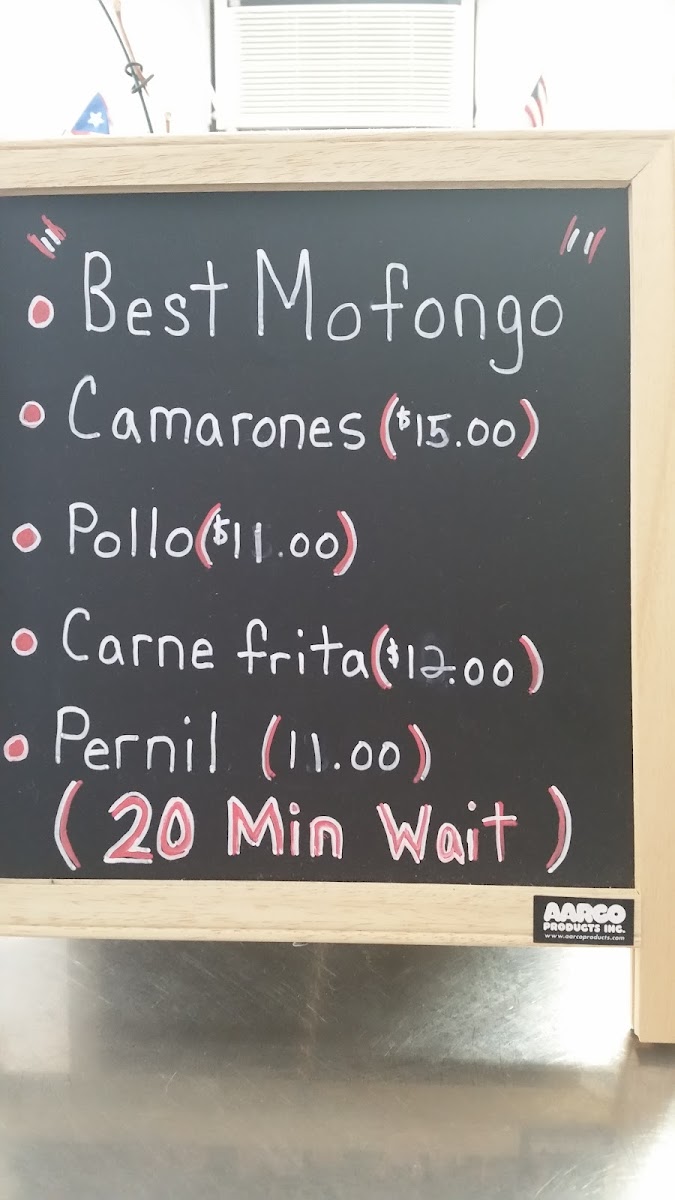 " Best Mofongo "
Camarones ($15.00)
Pollo ($11.00)
Carne frita ($12.00)
Pernil (11.00)
( 20 Min Wait )
AARCO
PRODUCTS INC.
www.aarcoproducts.com